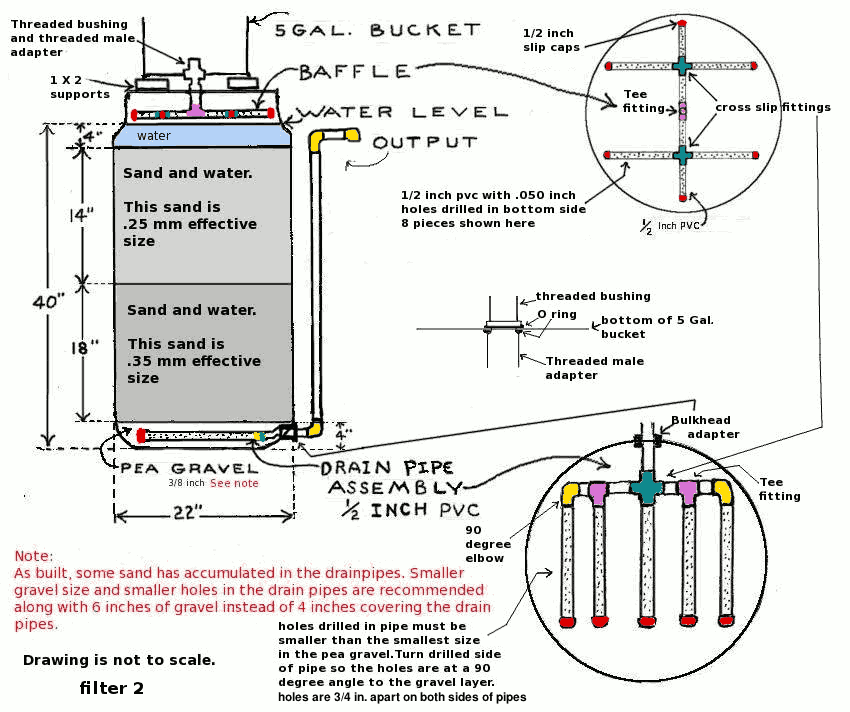 Threaded bushing
and threaded male
adapter
5 GAL. BUCKET
1/2 inch
slip caps
1 X 2
supports
BAFFLE
Tee
fitting
cross slip fittings
WATER LEVEL
4"
water
OUTPUT
Sand and water.
This sand is
.25 mm effective
size
14"
1/2 inch pvc with .050 inch
holes drilled in bottom side
8 pieces shown here
1/2 Inch PVC
40"
threaded bushing
O ring
bottom of 5 Gal.
bucket
Threaded male
adapter
Sand and water.
This sand is
.35 mm effective
size
18"
4"
Bulkhead
adapter
PEA GRAVEL
3/8 inch See note
DRAIN PIPE
ASSEMBLY
1/2 INCH PVC
Tee
fitting
22"
90
degree
elbow
Note:
As built, some sand has accumulated in the drainpipes. Smaller
gravel size and smaller holes in the drain pipes are recommended
along with 6 inches of gravel instead of 4 inches covering the drain
pipes.
holes drilled in pipe must be
smaller than the smallest size
in the pea gravel.Turn drilled side
of pipe so the holes are at a 90
degree angle to the gravel layer.
holes are 3/4 in. apart on both sides of pipes
Drawing is not to scale.
filter 2